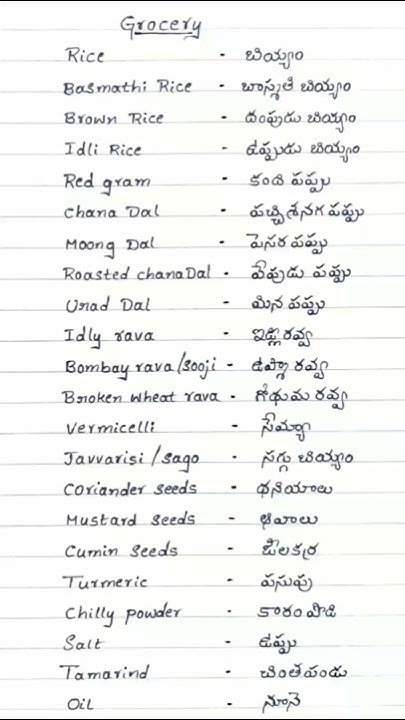 Grocery
Rice - బియ్యం
Basmathi Rice - బాస్మతి బియ్యం
Brown Rice - దంపుడు బియ్యం
Idli Rice - ఉప్పుడు బియ్యం
Red gram - కంది పప్పు
Chana Dal - పచ్చిశనగ పప్పు
Moong Dal - పెసర పప్పు
Roasted chana Dal - వేపుడు పప్పు
Urad Dal - మిన పప్పు
Idly rava - ఇడ్లీ రవ్వ
Bombay rava/sooji - ఉప్మా రవ్వ
Broken wheat rava - గోధుమ రవ్వ
Vermicelli - సేమ్యా
Javvarisi/sago - సగ్గు బియ్యం
Coriander seeds - ధనియాలు
Mustard seeds - ఆవాలు
Cumin seeds - జీలకర్ర
Turmeric - పసుపు
Chilly powder - కారం పొడి
Salt - ఉప్పు
Tamarind - చింతపండు
Oil - నూనె